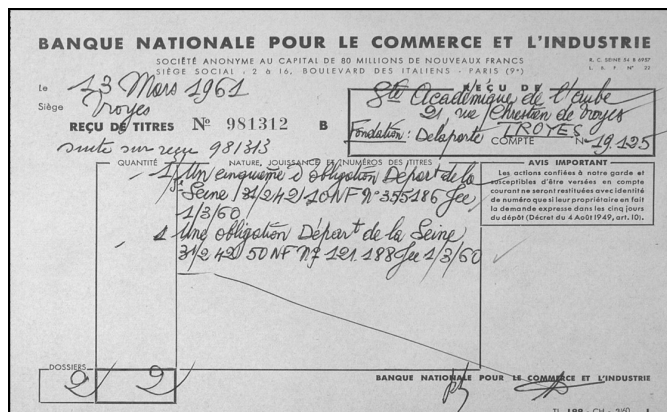 BANQUE NATIONALE POUR LE COMMERCE ET L'INDUSTRIE
SOCIÉTÉ ANONYME AU CAPITAL DE 80 MILLIONS DE NOUVEAUX FRANCS
SIÈGE SOCIAL - 2 à 16, BOULEVARD DES ITALIENS - PARIS (9e)
R. C. SEINE 54 B 6957
L. B. F No 22
Le 13 Mars 1961
Siège Troyes
REÇU DE TITRES No 981312 B
suite sur reçu 981313
REÇU DE
Sté Académique de l'Aube
21 rue Chrestien de Troyes
Fondation : Delaporte TROYES
COMPTE No 19.125
QUANTITÉ NATURE, JOUISSANCE ET NUMÉROS DES TITRES
1 Un cinquième d'obligation Départ de la
Seine 3½ 42 10NF No 355186 Jce
1/3/60
1 Une obligation Départt de la Seine
3½ 42 50 NF No 121.188 Jce 1/3/60
AVIS IMPORTANT
Les actions confiées à notre garde et
susceptibles d'être versées en compte
courant ne seront restituées avec identité
de numéro que si leur propriétaire en fait
la demande expresse dans les cinq jours
du dépôt (Décret du 4 Août 1949, art. 10).
DOSSIERS
2 2
BANQUE NATIONALE POUR LE COMMERCE ET L'INDUSTRIE